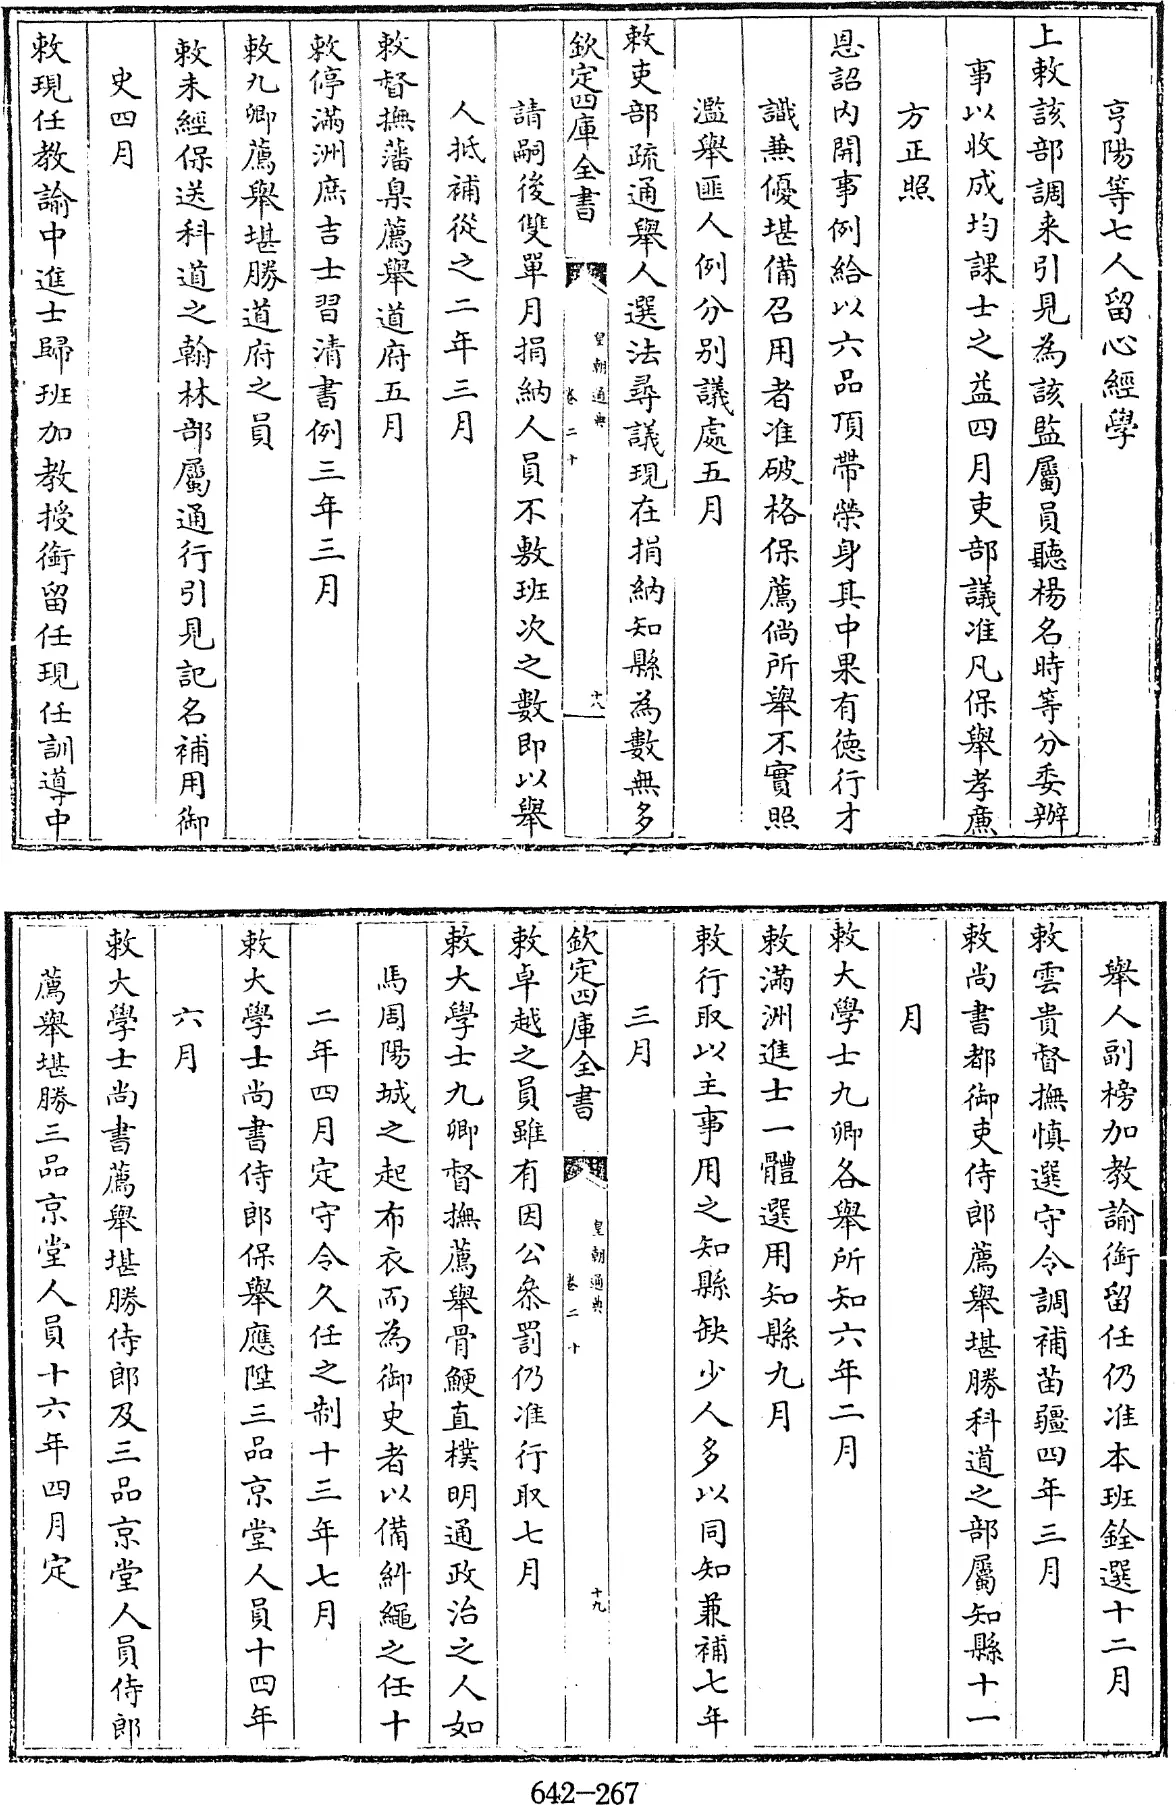 亨陽等七人留心經學
上敕該部調来引見為該監屬員聽楊名時等分委辦
事以收成均課士之益四月吏部議准凡保舉孝廉
方正照
恩詔内開事例給以六品頂帶榮身其中果有德行才
識兼優堪備召用者准破格保薦倘所舉不實照
濫舉匪人例分别議處五月
敕吏部疏通舉人選法尋議現在捐納知縣為數無多
欽定四庫全書
皇朝通典
卷二十
十八
請嗣後雙單月捐納人員不敷班次之數即以舉
人抵補從之二年三月
敕督撫藩臬薦舉道府五月
敕停滿洲庶吉士習清書例三年三月
敕九卿薦舉堪勝道府之員
敕未經保送科道之翰林部屬通行引見記名補用御
史四月
敕現任教諭中進士歸班加教授銜留任現任訓導中
舉人副榜加教諭銜留任仍准本班銓選十二月
敕雲貴督撫慎選守令調補苗疆四年三月
敕尚書都御吏侍郎薦舉堪勝科道之部屬知縣十一
月
敕大學士九卿各舉所知六年二月
敕滿洲進士一體選用知縣九月
敕行取以主事用之知縣缺少人多以同知兼補七年
三月
欽定四庫全書
皇朝通典
卷二十
十九
敕卓越之員雖有因公叅罰仍准行取七月
敕大學士九卿督撫薦舉骨鯁直樸明通政治之人如
馬周陽城之起布衣而為御史者以備糾繩之任十
二年四月定守令久任之制十三年七月
敕大學士尚書侍郎保舉應陞三品京堂人員十四年
六月
敕大學士尚書薦舉堪勝侍郎及三品京堂人員侍郎
薦舉堪勝三品京堂人員十六年四月定
642-267